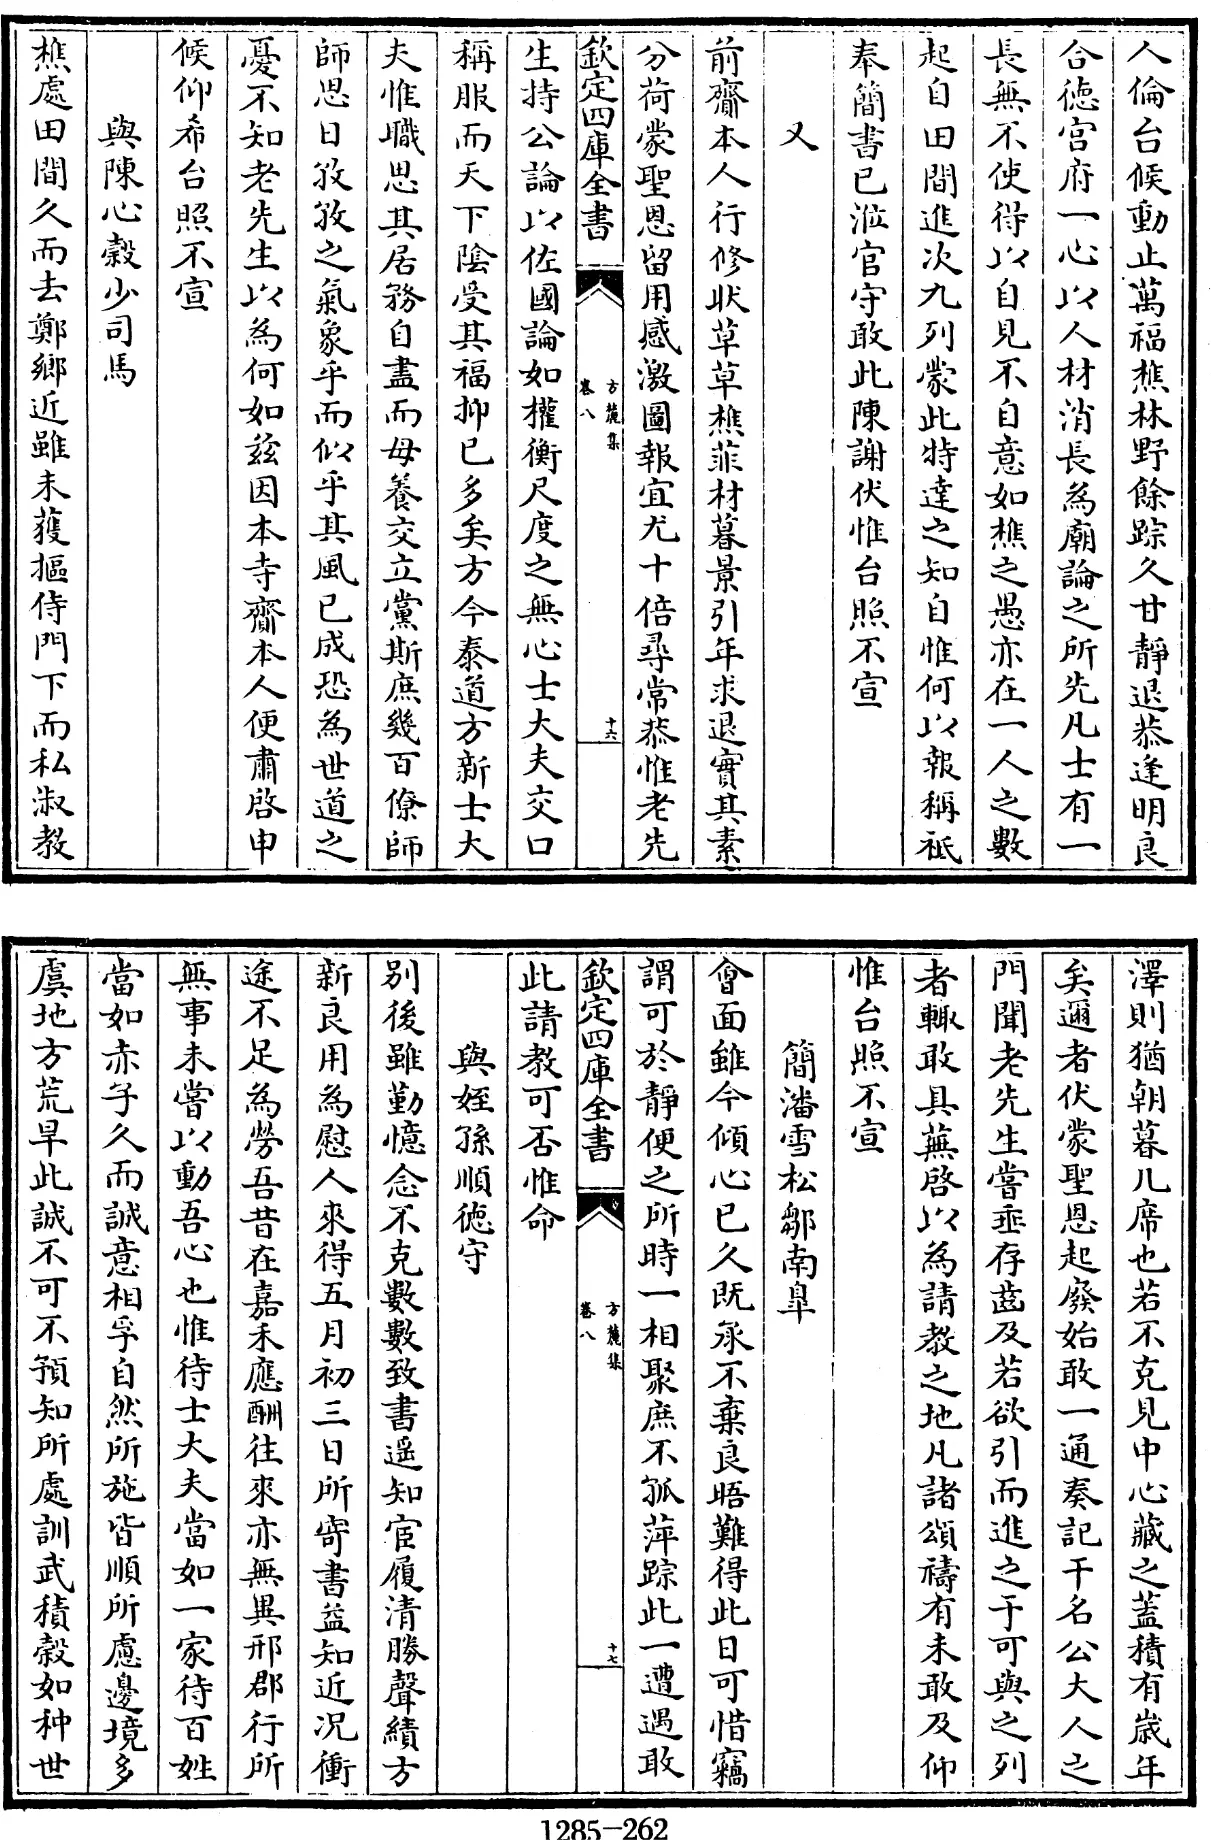 人倫台候動止萬福樵林野餘踪久甘靜退恭逢明良
合徳宫府一心以人材消長為廟論之所先凡士有一
長無不使得以自見不自意如樵之愚亦在一人之數
起自田間進次九列蒙此特達之知自惟何以報稱祗
奉簡書已涖官守敢此陳謝伏惟台照不宣
又
前齎本人行修狀草草樵菲材暮景引年求退實其素
分荷蒙聖恩留用感激圖報宜尤十倍尋常恭惟老先
欽定四庫全書
方麓集
卷八
十六
生持公論以佐國論如權衡尺度之無心士大夫交口
稱服而天下陰受其福抑已多矣方今泰道方新士大
夫惟職思其居務自盡而毋養交立黨斯庶幾百僚師
師思日孜孜之氣象乎而似乎其風已成恐為世道之
憂不知老先生以為何如兹因本寺齎本人便肅啓申
候仰希台照不宣
與陳心穀少司馬
樵處田間久而去鄭鄉近雖未獲摳侍門下而私淑教
澤則猶朝暮几席也若不克見中心藏之蓋積有歳年
矣邇者伏蒙聖恩起廢始敢一通奏記于名公大人之
門聞老先生嘗垂存齒及若欲引而進之于可與之列
者輙敢具蕪啓以為請教之地凡諸頌禱有未敢及仰
惟台照不宣
簡潘雪松鄒南臯
會面雖今傾心已久既承不棄良晤難得此日可惜竊
謂可於靜便之所時一相聚庶不孤萍踪此一遭遇敢
欽定四庫全書
方麓集
卷八
十七
此請教可否惟命
與姪孫順徳守
别後雖勤憶念不克數數致書遥知宦履清勝聲績方
新良用為慰人來得五月初三日所寄書益知近况衝
途不足為勞吾昔在嘉禾應酬往來亦無異邢郡行所
無事未嘗以動吾心也惟待士大夫當如一家待百姓
當如赤子久而誠意相孚自然所施皆順所慮邊境多
虞地方荒旱此誠不可不預知所處訓武積榖如种世
1285-262